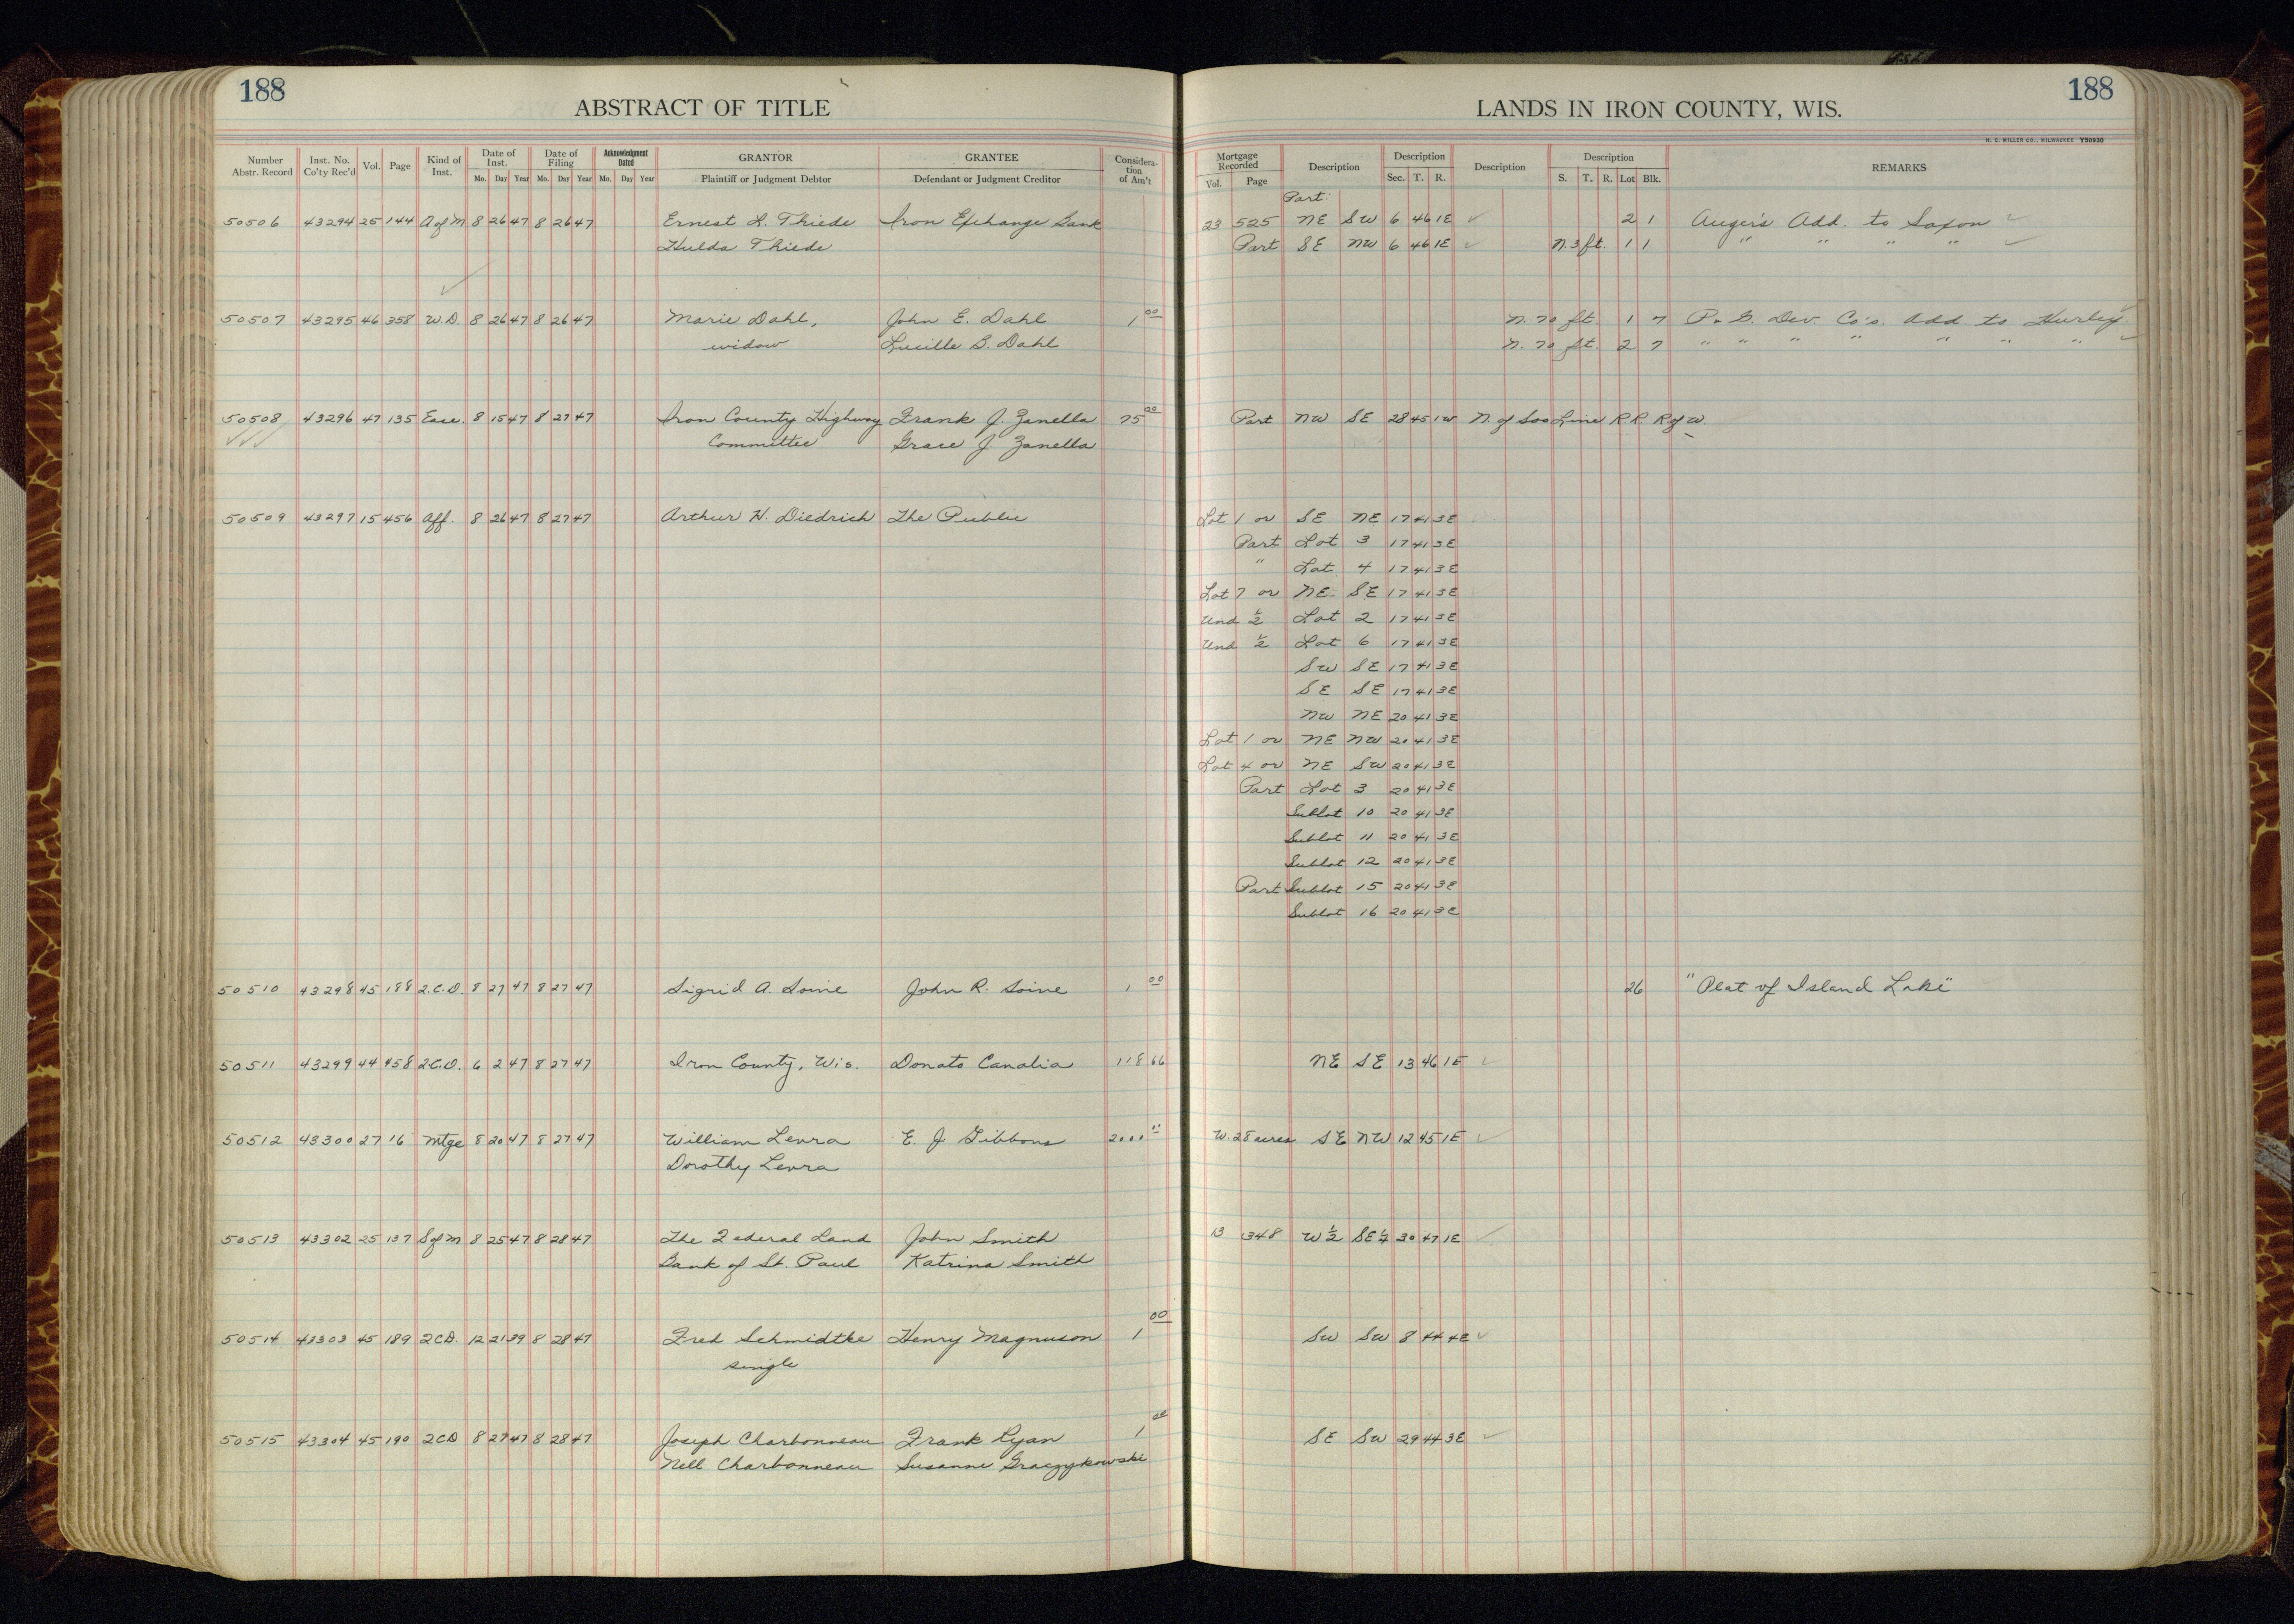 188
188
ABSTRACT OF TITLE
LANDS IN IRON COUNTY, WIS.
H. C. MILLER CO., MILWAUKEE Y50930
Number Abstr. Record Inst. No. Co'ty Rec'd Vol. Page Kind of Inst. Date of Inst. Mo. Day Year Date of Filing Mo. Day Year Acknowledgment Dated Mo. Day Year GRANTOR Plaintiff or Judgment Debtor GRANTEE Defendant or Judgment Creditor Consideration of Am't
Mortgage Recorded Vol. Page Description Description Sec. T. R. Description Description S. T. R. Lot Blk. REMARKS
Part
50506 43294 25 144 A of M 8 26 47 8 26 47 Ernest L. Thiede Iron Exchange Bank 23 525 NE SW 6 46 1E ✓ 2 1 Auger's Add. to Saxon ✓
Hulda Thiede Part SE NW 6 46 1E ✓ N. 3 ft. 1 1 " " " " ✓
50507 43295 46 358 W.D. 8 26 47 8 26 47 Marie Dahl, John E. Dahl 1 00 N. 70 ft. 1 7 P. & G. Dev. Co's. Add. to Hurley
widow Lucille B. Dahl N. 70 ft. 2 7 " " " " " " "
50508 43296 47 135 Ease. 8 15 47 8 27 47 Iron County Highway Frank J. Zanella 75 00 Part NW SE 28 45 1W N. of Soo Line R.R. R of W.
Committee Grace J Zanella
50509 43297 15 456 Aff. 8 26 47 8 27 47 Arthur H. Diedrich The Public Lot 1 or SE NE 17 41 3E
Part Lot 3 17 41 3E
" Lot 4 17 41 3E
Lot 7 or NE SE 17 41 3E
Und ½ Lot 2 17 41 3E
Und ½ Lot 6 17 41 3E
SW SE 17 41 3E
SE SE 17 41 3E
NW NE 20 41 3E
Lot 1 or NE NW 20 41 3E
Lot 4 or NE SW 20 41 3E
Part Lot 3 20 41 3E
Sublot 10 20 41 3E
Sublot 11 20 41 3E
Sublot 12 20 41 3E
Part Sublot 15 20 41 3E
Sublot 16 20 41 3E
50510 43298 45 188 2.C.D. 8 27 47 8 27 47 Sigrid A. Soine John R. Soine 1 00 26 "Plat of Island Lake"
50511 43299 44 458 2C.D. 6 2 47 8 27 47 Iron County, Wis. Donato Canalia 118 66 NE SE 13 46 1E ✓
50512 43300 27 16 Mtge 8 20 47 8 27 47 William Levra E. J Gibbons 2000 00 W. 28 acres SE NW 12 45 1E ✓
Dorothy Levra
50513 43302 25 137 S of M 8 25 47 8 28 47 The Federal Land John Smith 13 348 W ½ SE ¼ 30 47 1E ✓
Bank of St. Paul Katrina Smith
50514 43303 45 189 2CD. 12 21 39 8 28 47 Fred Schmidtke Henry Magnuson 1 00 SW SW 8 44 4E ✓
single
50515 43304 45 190 2CD 8 27 47 8 28 47 Joseph Charbonneau Frank Ryan 1 00 SE SW 29 44 3E ✓
Nell Charbonneau Susanne Graczykowski